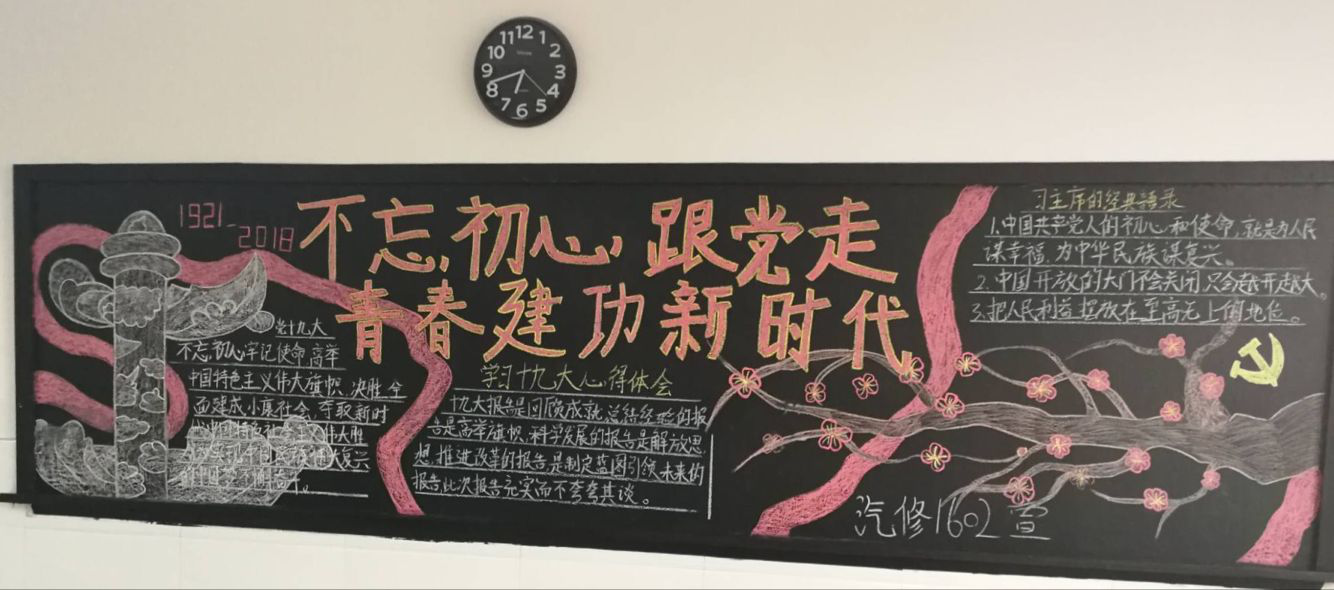 12
1
2
3
4
5
6
7
8
9
10
11
1921-
2018
不忘初心,跟党走
青春建功新时代
党十九大
不忘初心,牢记使命,高举
中国特色主义伟大旗帜、决胜全
面建成小康社会、夺取新时
学习十九大心得体会
十九大报告是回顾成就、总结经验的报
告是高举旗帜、科学发展的报告是解放思
想、推进改革的报告是制定蓝图引领未来的
报告,此次报告充实而不夸夸其谈。
习主席的经典语录
1.中国共产党人的初心和使命,就是为人民
谋幸福,为中华民族谋复兴。
2.中国开放的大门不会关闭,只会越开越大。
3.把人民利益摆放在至高无上的地位。
汽修1602宣